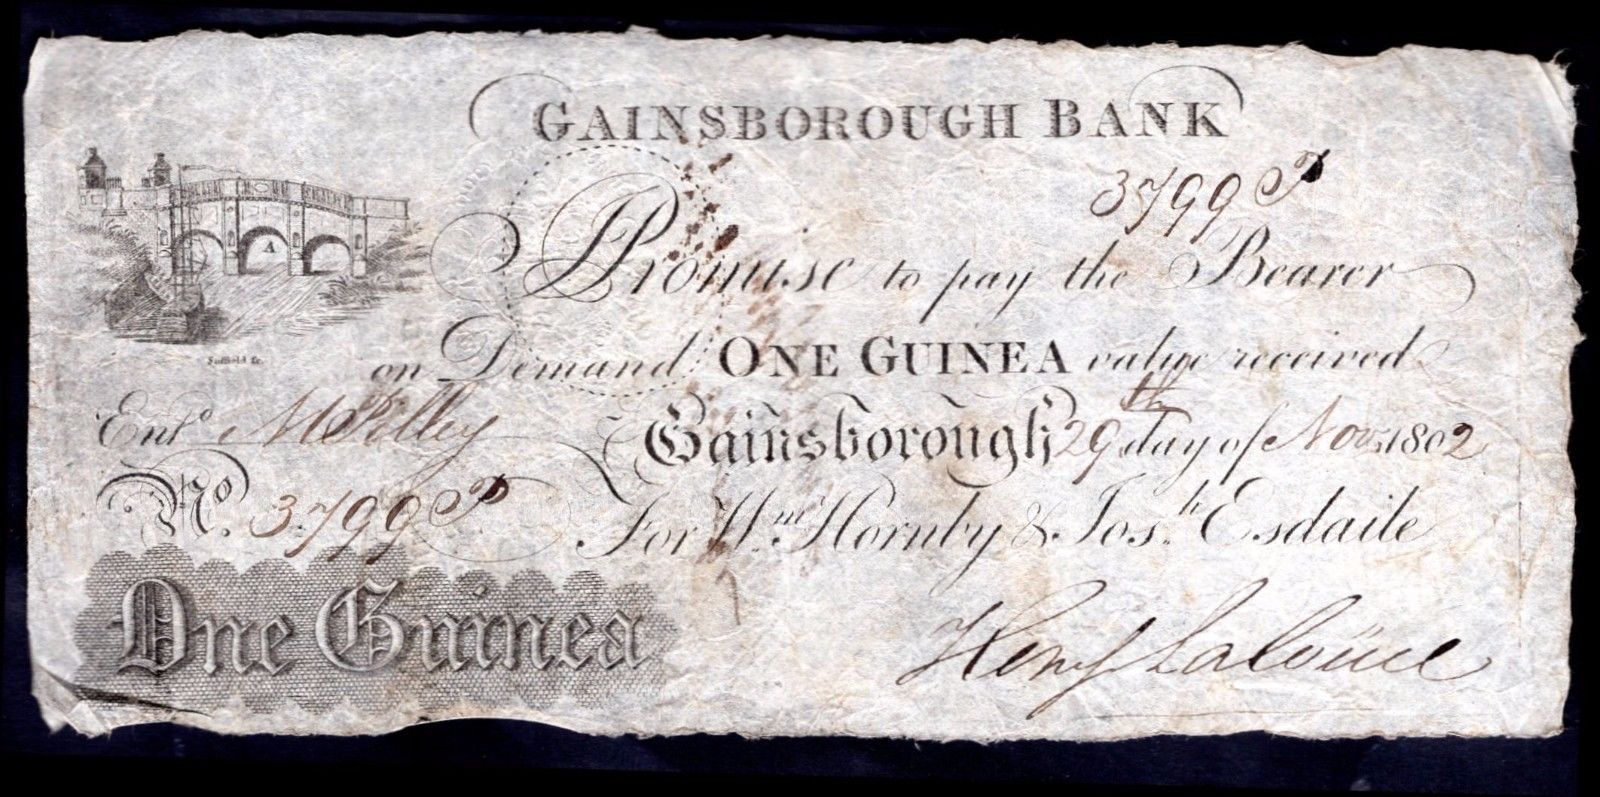 GAINSBOROUGH BANK
3799 P
I Promise to pay the Bearer
on Demand ONE GUINEA value received
Gainsborough 29th day of Novr. 1802
Entd.
No. 3799 P
For Wm. Hornby & Josh. Esdaile
One Guinea
Henry
A